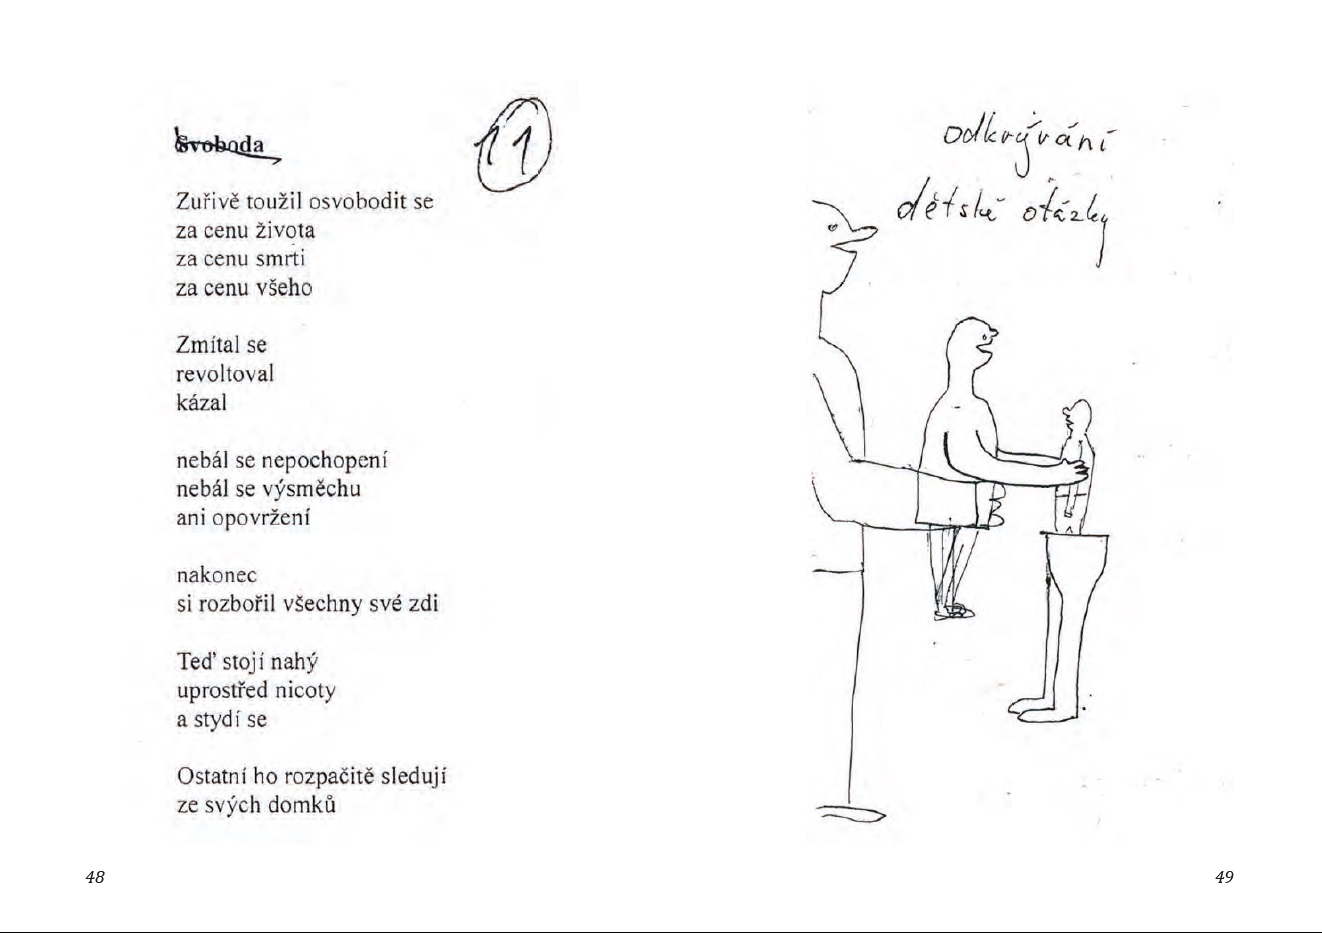 Svoboda
11
Zuřivě toužil osvobodit se
za cenu života
za cenu smrti
za cenu všeho
Zmítal se
revoltoval
kázal
nebál se nepochopení
nebál se výsměchu
ani opovržení
nakonec
si rozbořil všechny své zdi
Teď stojí nahý
uprostřed nicoty
a stydí se
Ostatní ho rozpačitě sledují
ze svých domků
48
odkrývání
dětské otázky
49